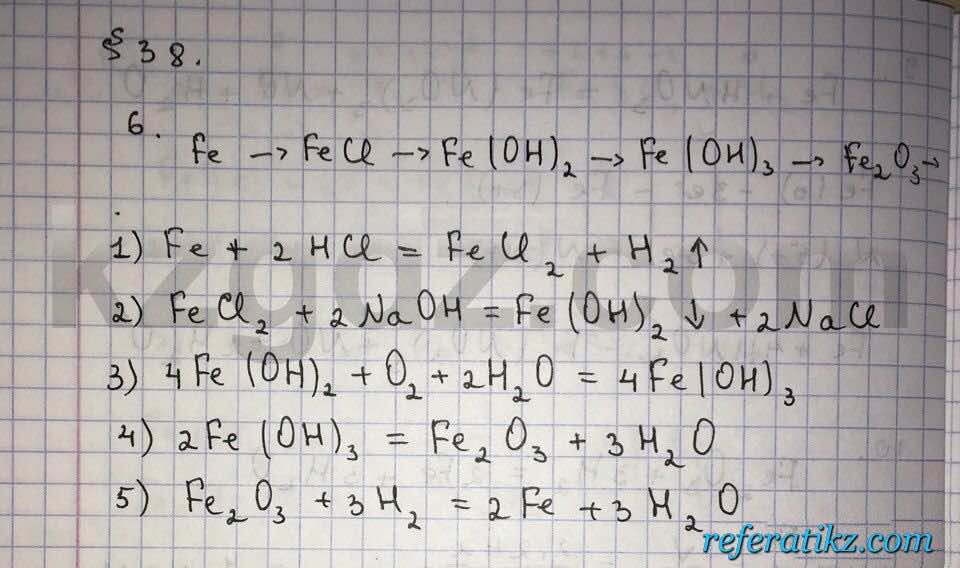 § 38.
6.
Fe → FeCl → Fe(OH)₂ → Fe(OH)₃ → Fe₂O₃ →
1) Fe + 2HCl = FeCl₂ + H₂↑
2) FeCl₂ + 2NaOH = Fe(OH)₂↓ + 2NaCl
3) 4Fe(OH)₂ + O₂ + 2H₂O = 4Fe(OH)₃
4) 2Fe(OH)₃ = Fe₂O₃ + 3H₂O
5) Fe₂O₃ + 3H₂ = 2Fe + 3H₂O
kzgdz.com
referatikz.com